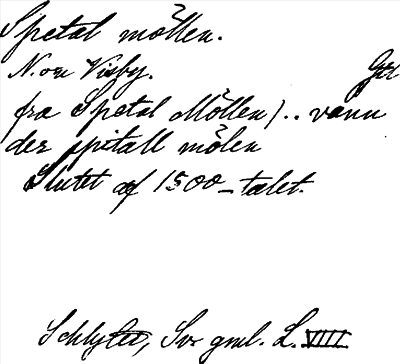 Spetal möllen.
N. om Visby. Gtl
fra Spetal Möllen) .. vann
der spitall mölen
Slutet af 1500-talet.
Schlyter, Sv gml. L. VIII